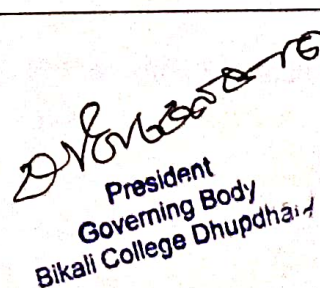 President
Governing Body
Bikali College Dhupdhara